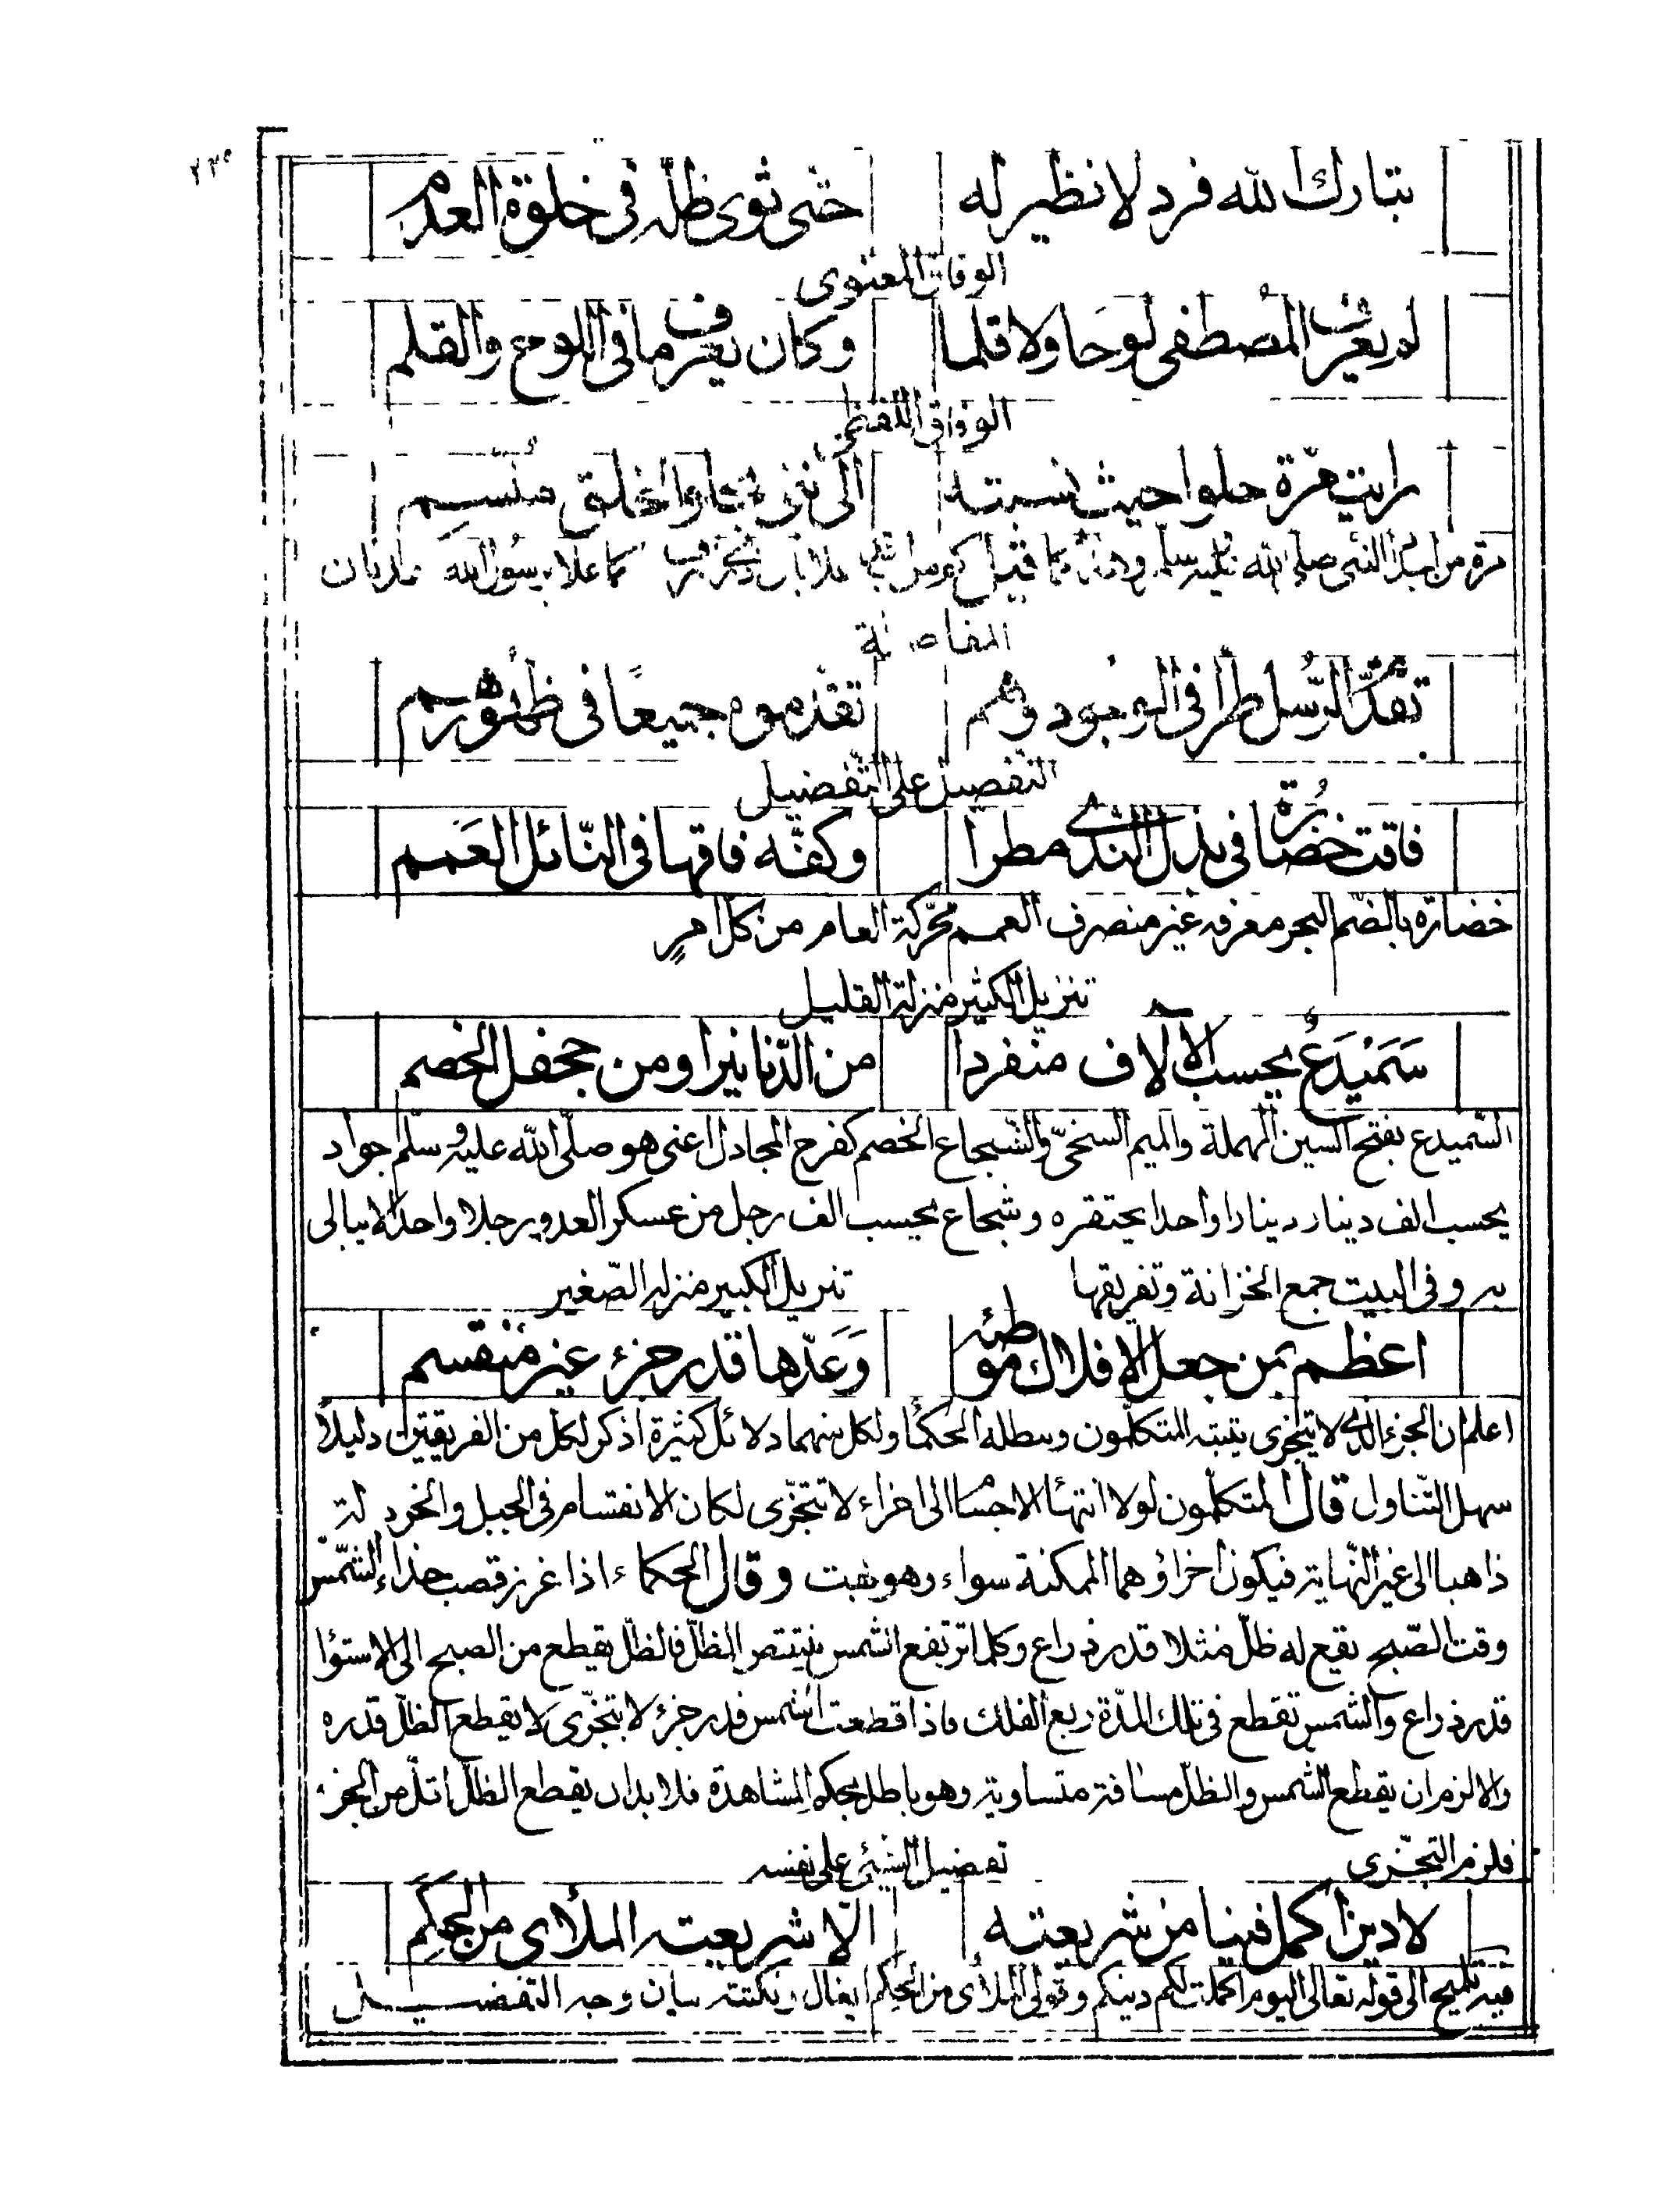 ٢٣٥
تبارك الله فرد لا نظير له حتّى ثوى ظلّه فى خلوة العدم
الوفاق المعنوى
لم يعرف المصطفى لوحا ولا قلما وكان يعرف ما فى اللوح والقلم
الوفاق اللفظى
رايت مرّة حلوا حيث نسبته الى
مرة من اجداد النبى صلى الله عليه وسلم كما علا برسول الله عدنان
المفاصلة
تقدّم الرّسل طرا فى الوجود وهم تقدموه جميعًا فى ظهورهم
التفضيل على التفضيل
فاقت خضارة فى بذل الندى مطرا وكفّه فاقها فى النّائل العَمم
خضارة بالضّم البحر معرفه غير منصرف العمم محرّكة العام من كل امرٍ
تنزيل الكثير منزلة القليل
سَمَيْدَعُ يحسب الآلاف منفردا من الدّنانير او من جحفل الخصم
السّميدع بفتح السين المهملة والميم السخىّ والشّجاع الخصم كفرح المجادل اعنى هو صلّى الله عليه وسلّم جواد
يحسب الف دينار دينارا واحدا يحتقره وشجاع يحسب الف رجل من عسكر العدو رجلا واحدا لا يبالى
به وفى البيت جمع الخزانة وتفريقها تنزيل الكبير منزلة الصّغير
اعظم بمن جعل الافلاك موطئه وَعَدّها قدر جزء غير منقسم
اعلم ان الجزء الذى لا يتجزى يثبته المتكلّمون ويبطله الحكمًا ولكل منهما دلائل كثيرة اذكر لكل من الفريقين دليلاً
سهل التّناول قال المتكلّمون لولا انتهًا الاجسًا الى اجزاء لا تتجزّى لكان الانقسام فى الجبل والخردلة
ذاهبا الى غير النّهاية فيكون اجزاؤهما الممكنة سواء وهو وقال الحكماء اذا غرز قصب حذاء الشّمس
وقت الصّبح يقع له ظلّ مثلا قدر ذراع وكلما ترتفع الشمس ينتقص الظلّ فالظلّ يقطع من الصبح الى الاستوا
قدر ذراع والشمس تقطع فى تلك المدّة ربع الفلك فاذا قطعت الشمس قدر جزء لا يتجزّى لا يقطع الظلّ قدره
والا لزم ان يقطع الشمس والظلّ مسافة متساوية وهو باطل بحكم المشاهدة فلا بد ان يقطع الظلّ اقلّ من الجزء
فلزم التجزّى تفضيل الشيئ على نفسه
لا دين اكمل فينا من شريعته الّا شريعته الملأى من الحِكَمِ
فيه تلميح الى قوله تعالى اليوم اكملت لكم دينكم وقولى الملأى من الحِكم ايغال ونكتته بيان وجه التفضيل